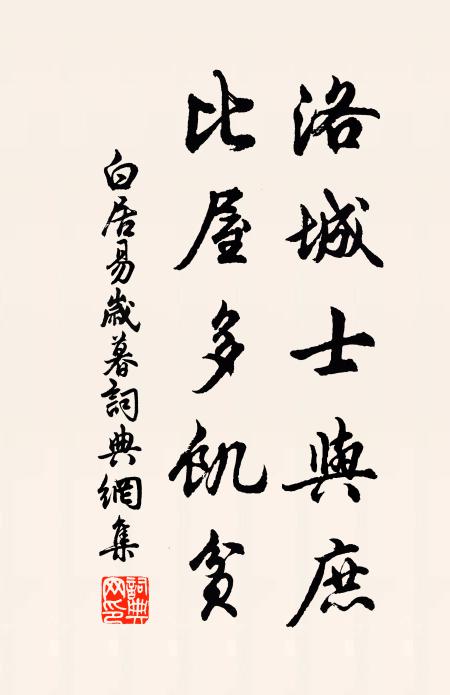 洛城士與庶
比屋多飢貧
白居易歲暮詞典網集
詞典網印